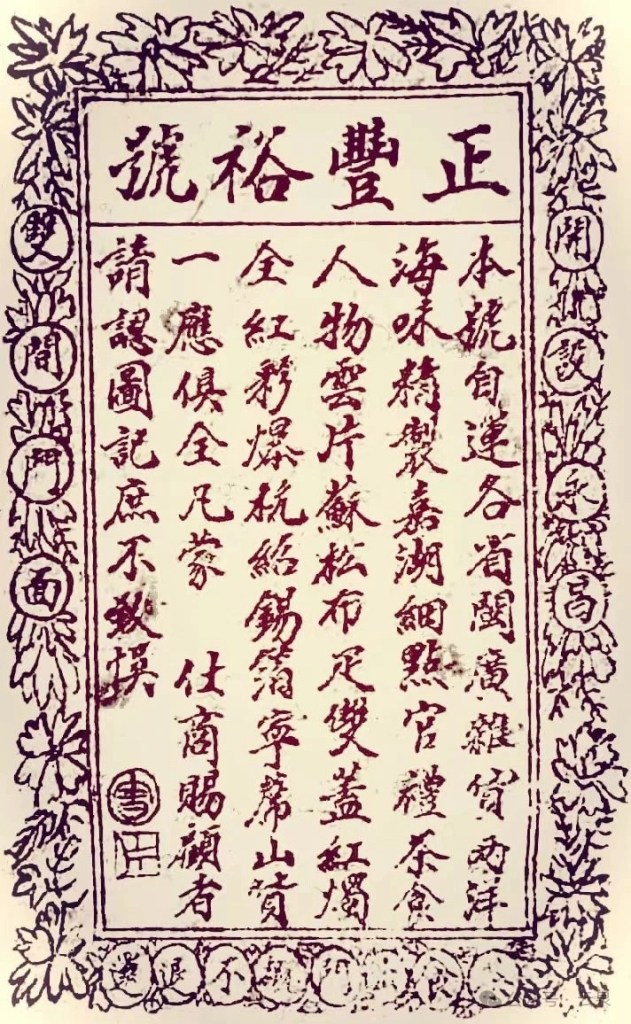 正豐裕號
開設永昌
本號自運各省閩廣雜貨兩洋
海味精製嘉湖細點官禮茶食
人物雲片蘇松布疋雙蓋紅燭
全紅彩爆杭紹錫箔寧蓆山貨
一應俱全凡蒙 仕商賜顧者
請認圖記庶不致悞
雙間門面
不退